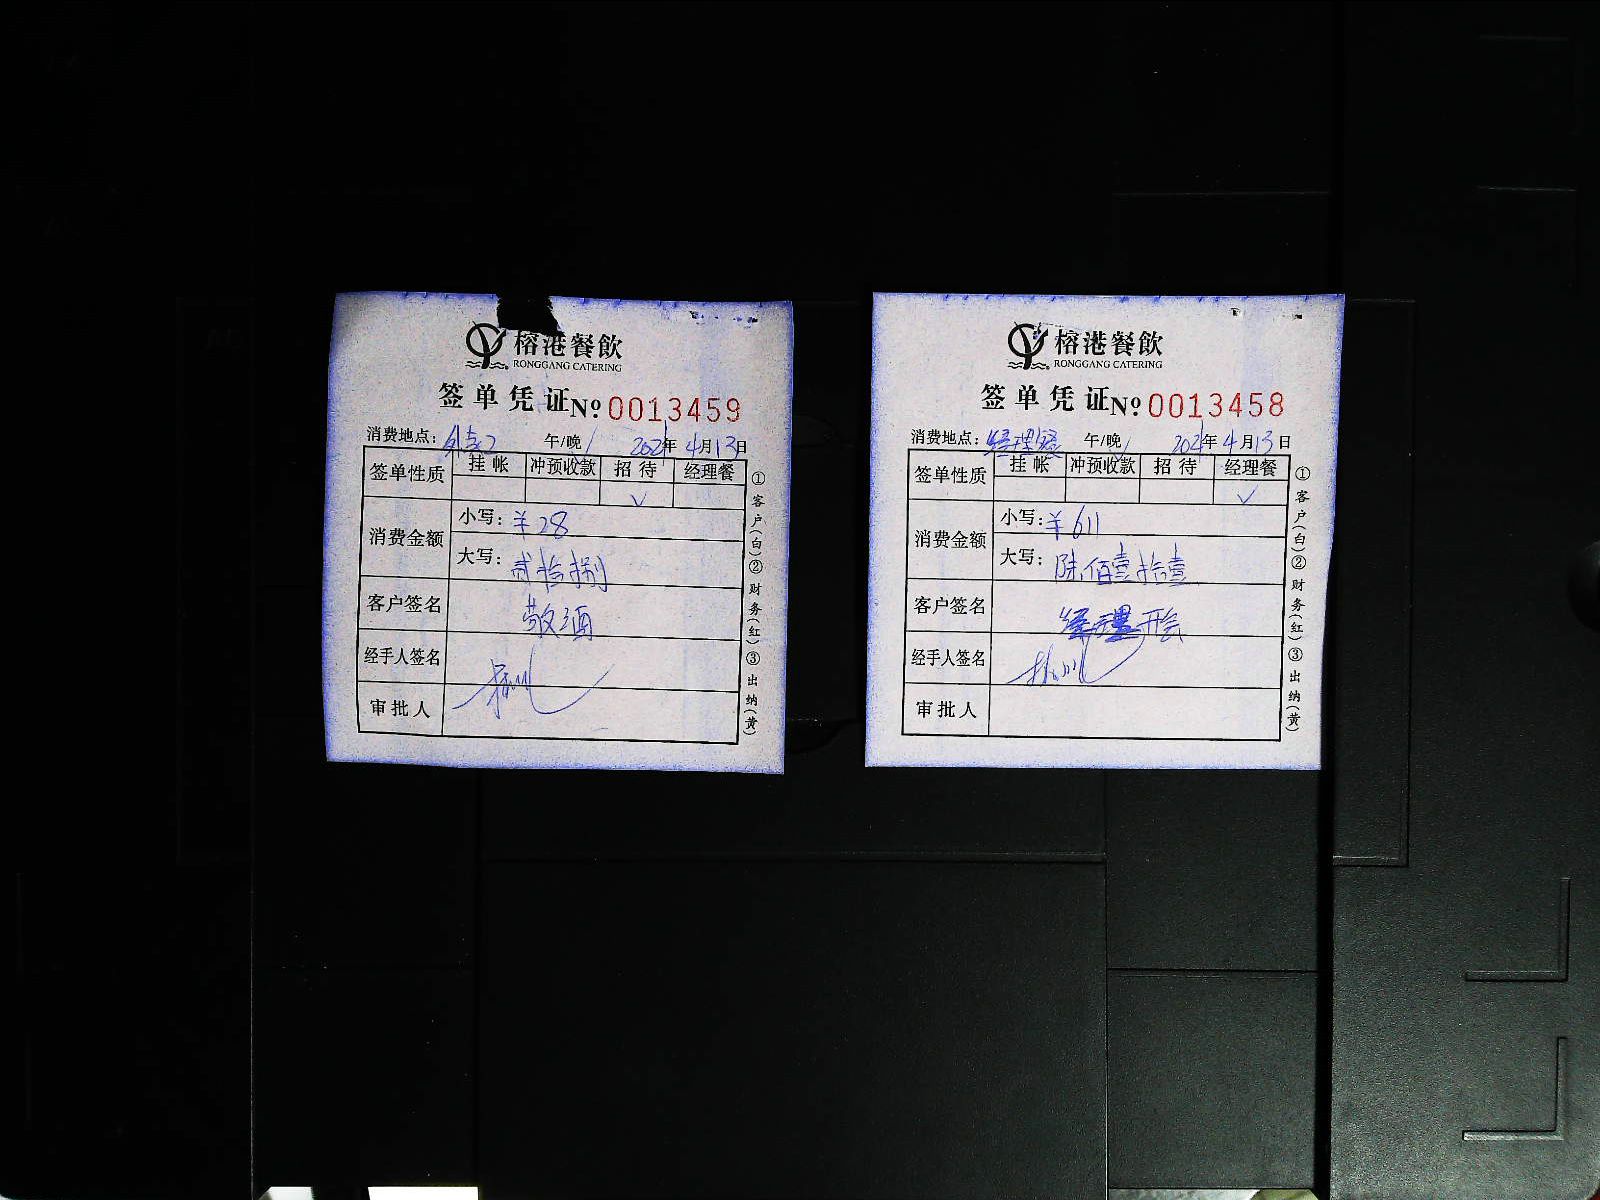 榕港餐飲
RONGGANG CATERING
签单凭证 Nº 0013459
消费地点： 午/晚 2021年4月13日
签单性质 挂帐 冲预收款 招待 经理餐
✓
消费金额 小写：¥28
大写：贰拾捌
客户签名 敬酒
经手人签名
审批人
①客户(白)②财务(红)③出纳(黄)
榕港餐飲
RONGGANG CATERING
签单凭证 Nº 0013458
消费地点：经理餐 午/晚 2021年4月13日
签单性质 挂帐 冲预收款 招待 经理餐
✓
消费金额 小写：¥611
大写：陆佰壹拾壹
客户签名 经理开会
经手人签名
审批人
①客户(白)②财务(红)③出纳(黄)